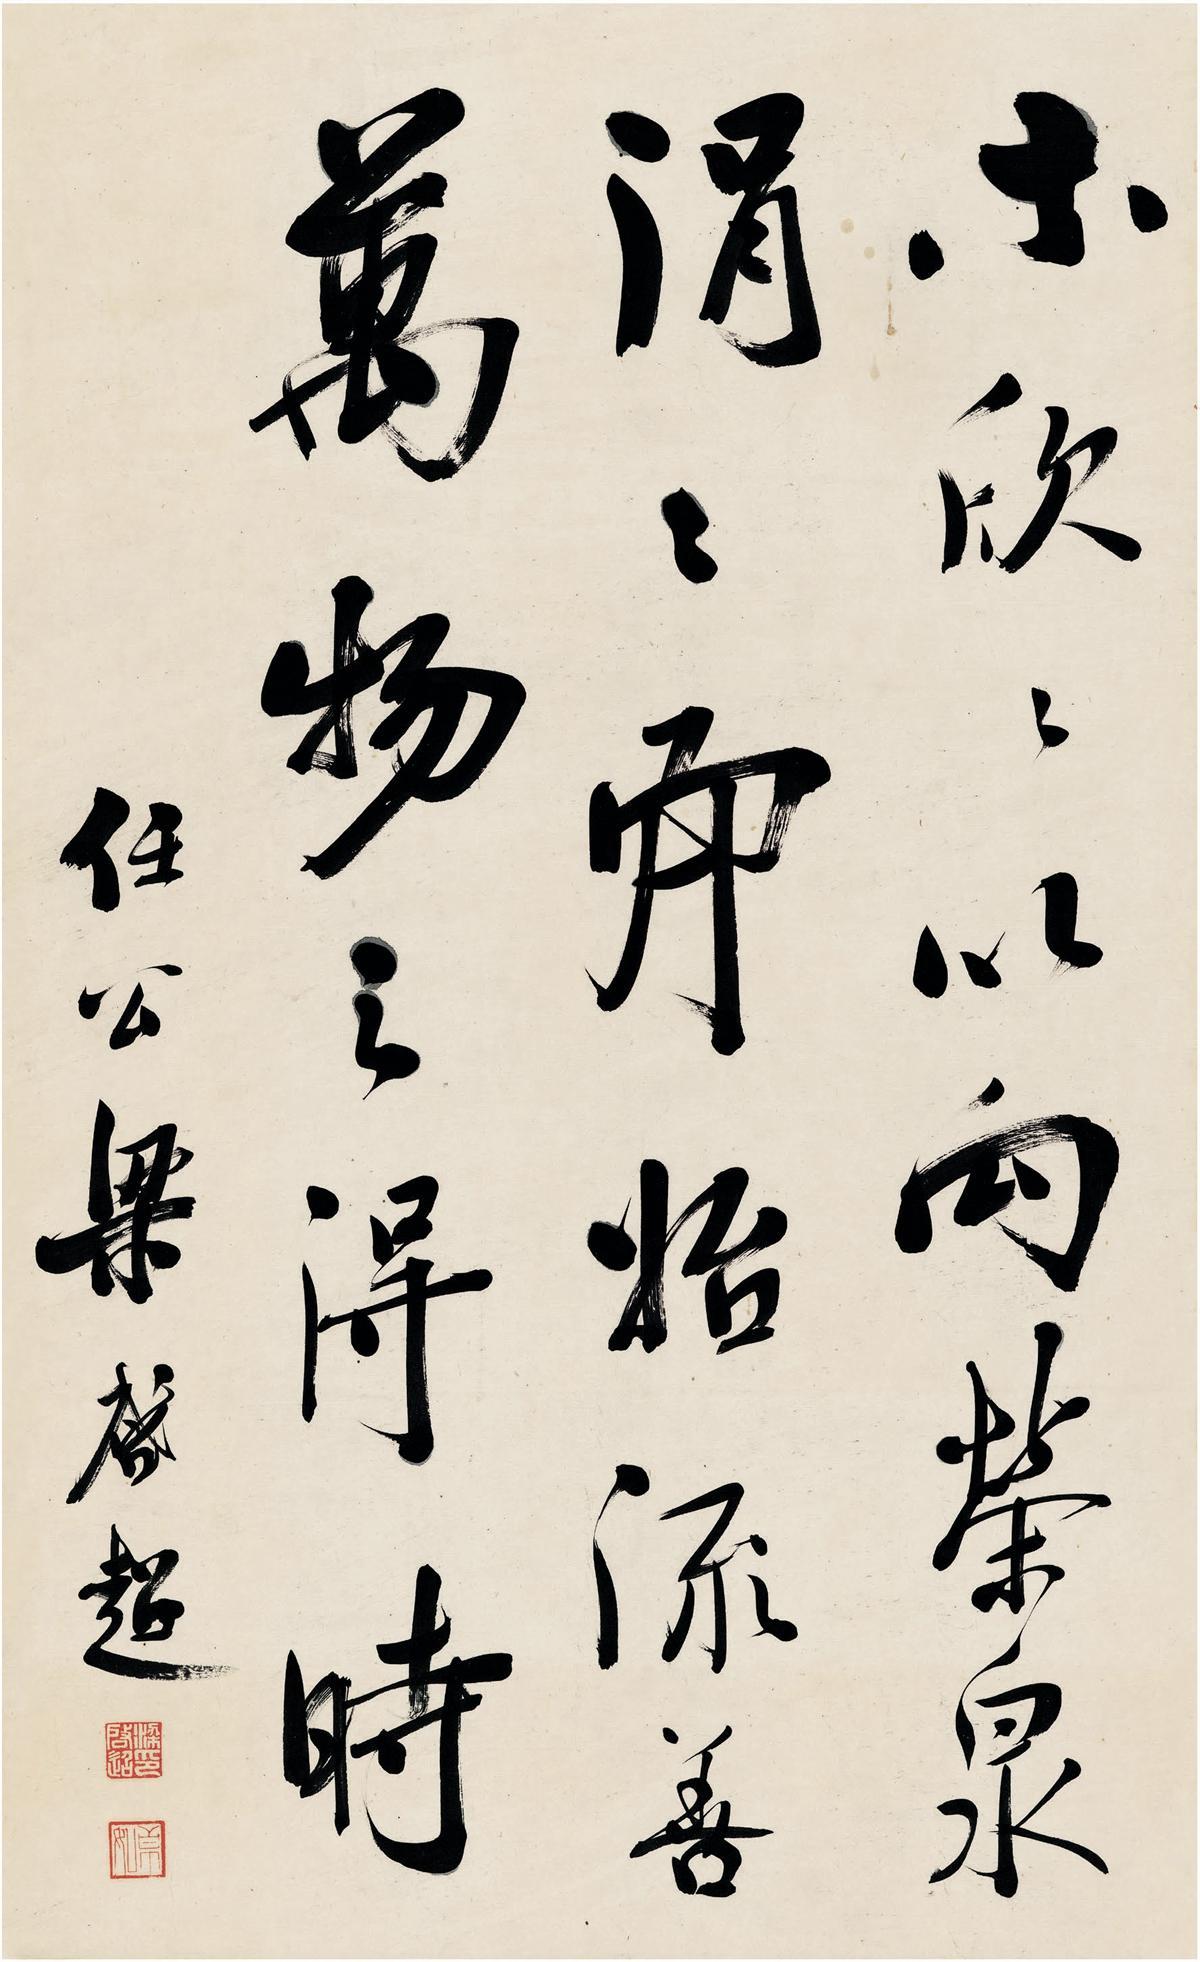 木欣〻以向榮泉
涓〻而始流善
萬物之得時
任公梁啓超
梁印啓超